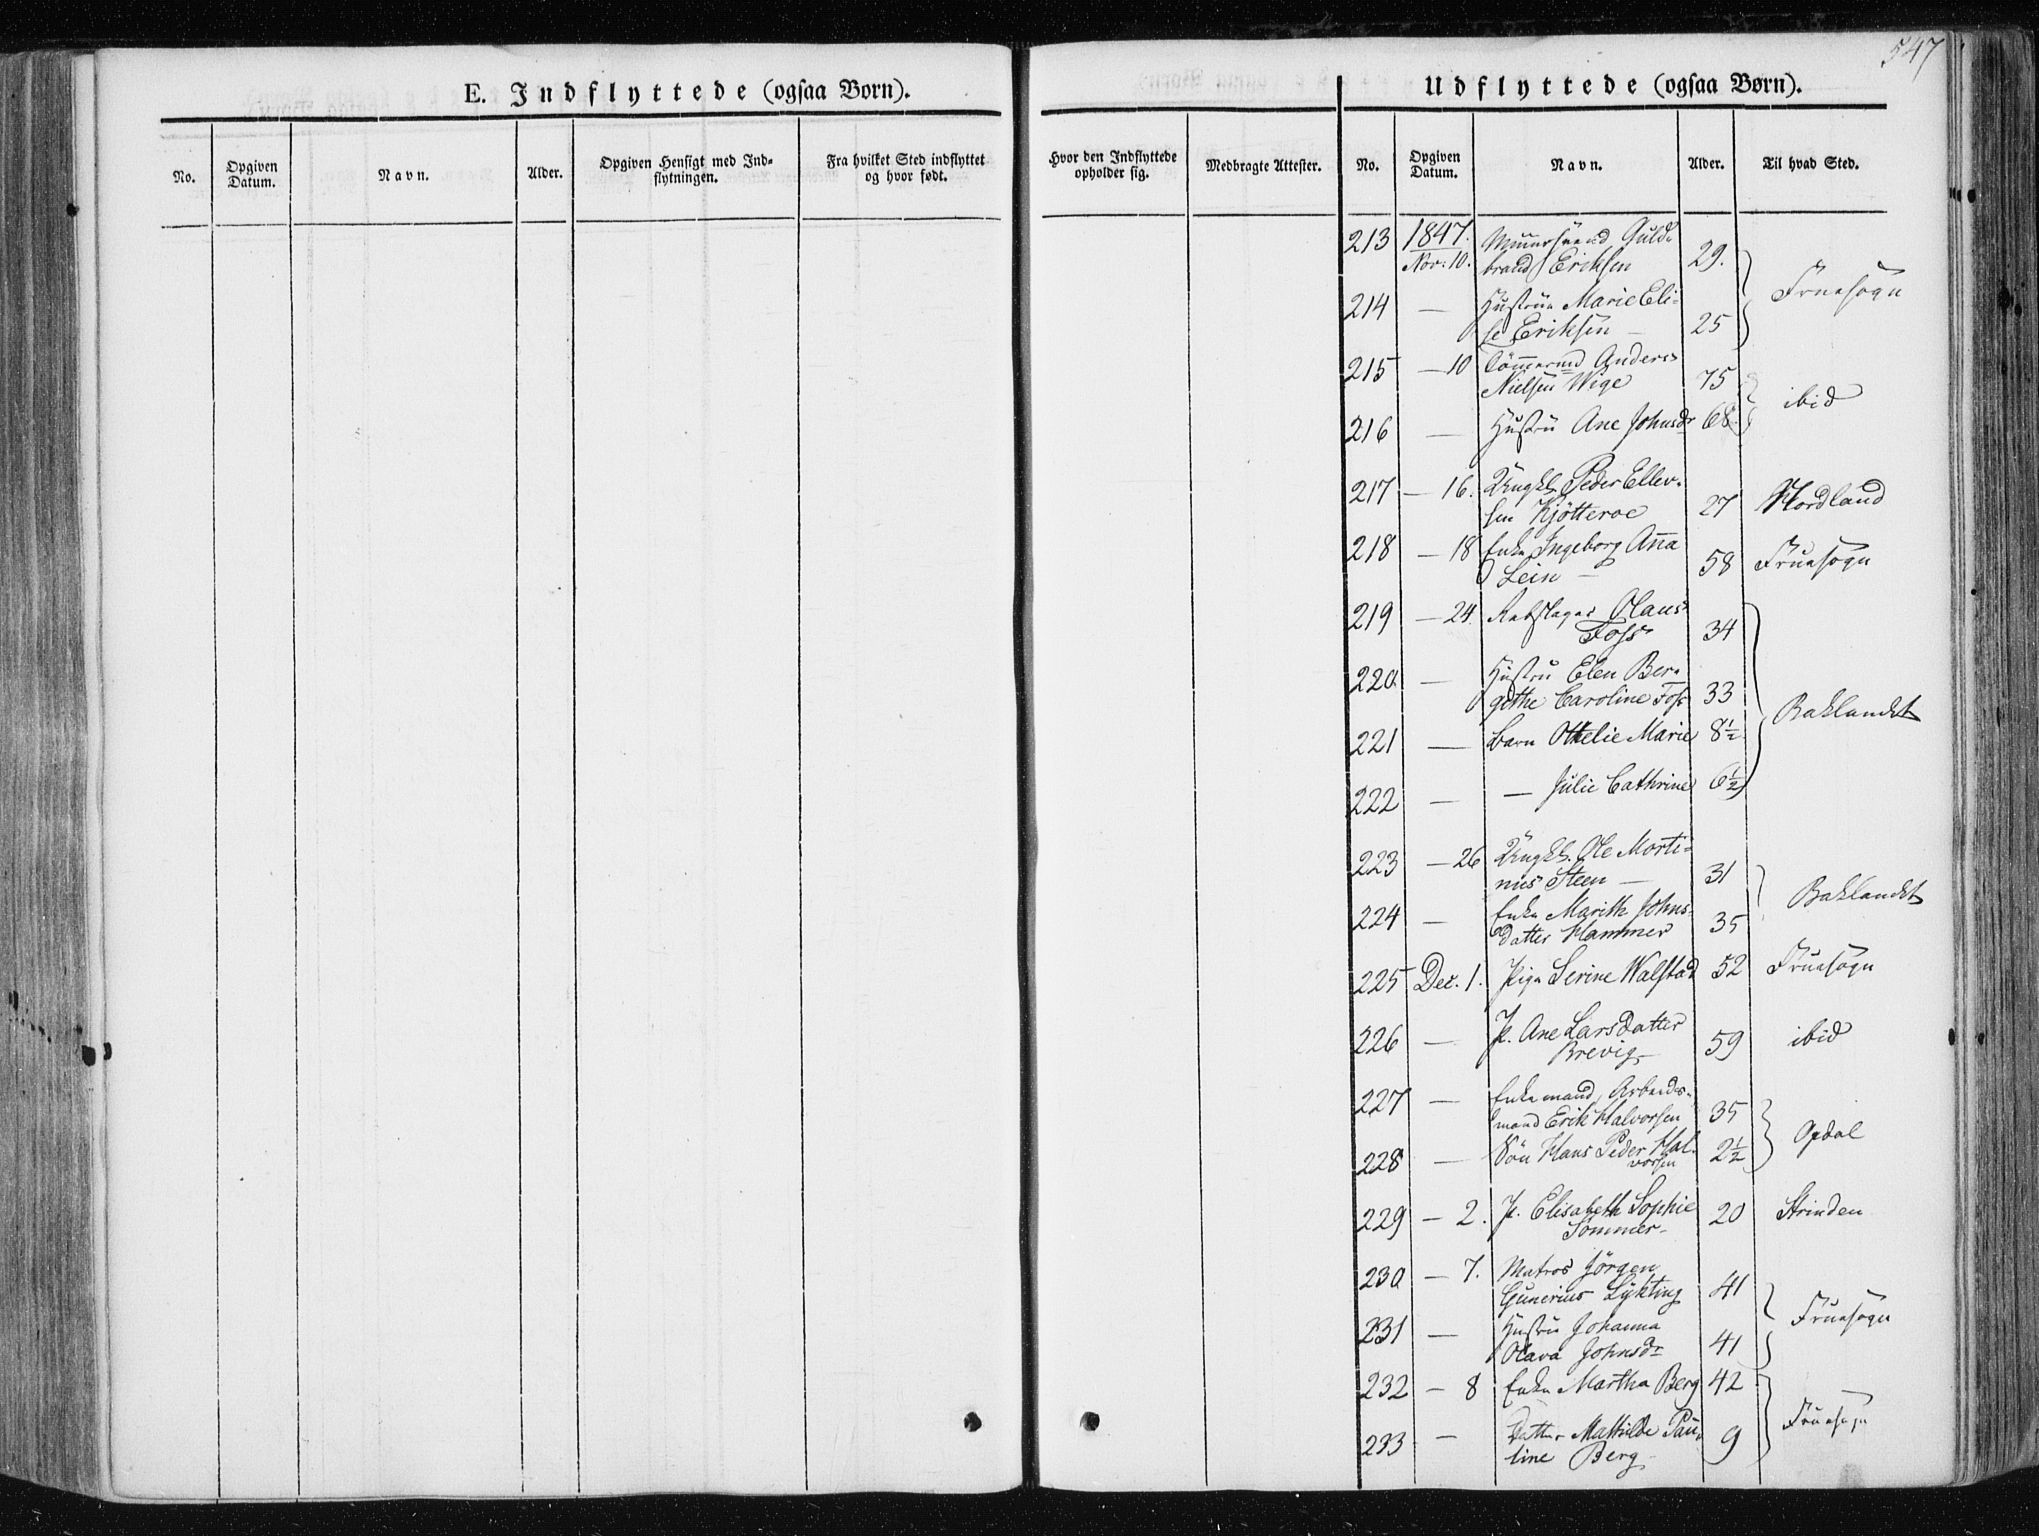 547
E. Indflyttede (ogsaa Børn).
Udflyttede (ogsaa Børn).
No.
Opgiven Datum.
Navn.
Alder.
Opgiven Hensigt med Ind-
flytningen.
Fra hvilket Sted indflyttet
og hvor født.
Hvor den Indflyttede
opholder sig.
Medbragte Attester.
No.
Opgiven Datum.
Navn.
Alder.
Til hvad Sted.
213 1847. Nov: 10. Muursvend Guld-
brand Eriksen 29.
Fruesogn
214 — Hustrue Marie Eli-
se Eriksen — 25
215 — 10 Tömmermd Anders
Nielsen Wige 75
ibid
216 — Hustru Ane Johnsdr 68
217 — 16. Ungk. Peder Ellev-
sen Kjötteroe 27 Nordland
218 — 18 Enke Ingeborg Ana
Lein — 58 Fruesogn
219 — 24. Rebslager Olaus
Foss 34
220. — Hustru Elen Ber-
githe Caroline Foss 33
Baklandet
221 — Barn Othelie Marie 8½
222 — — Julie Cathrine 6½
223 — 26 Ungk. Ole Morti-
nus Steen — 31
Baklandet
224 — Enke Marith Johns-
datter Hammer 35
225 Dec. 1. Pige Serine Walstad 52 Fruesogn
226 — P. Ane Larsdatter
Brevig — 59 ibid
227 — Enkemand, Arbeids-
mand Erik Halvorsen 35
Opdal
228 — Sön Hans Peder Hal-
vorsen 2½
229 — 2. P. Elisabeth Sophie
Sommer — 20 Strinden
230 — 7. Matros Jörgen
Gunerius Lykting 41
Fruesogn
231 — Hustru Johanna
Olava Johnsdr 41
232 — 8 Enke Martha Berg 42
Fruesogn
233 — Datter Mathilde Pau-
line Berg 9